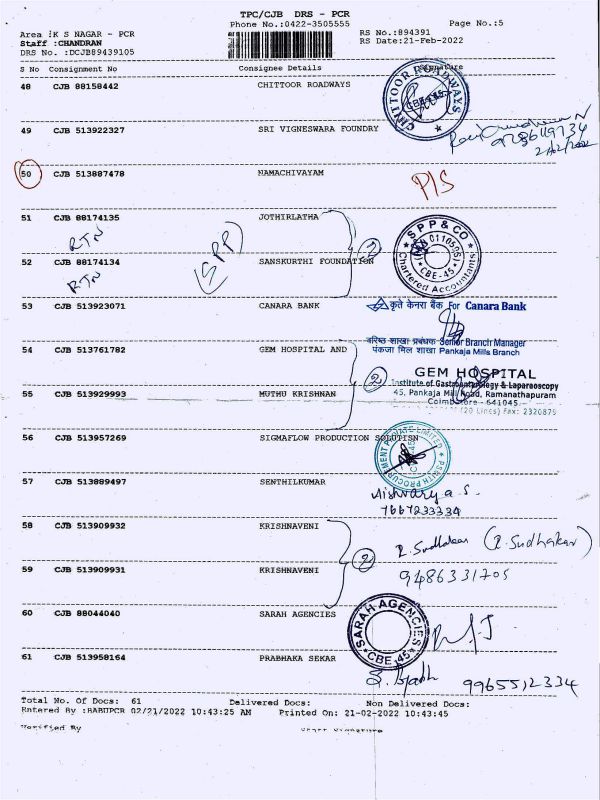 TPC/CJB DRS - PCR
Phone No.:0422-3505555
Page No.:5
Area :K S NAGAR - PCR
RS No.:894391
Staff :CHANDRAN
RS Date:21-Feb-2022
DRS No. :DCJB89439105
S No Consignment No Consignee Details Signature
48 CJB 88158442 CHITTOOR ROADWAYS
CHITTOOR ROADWAYS
CBE-45
49 CJB 513922327 SRI VIGNESWARA FOUNDRY
50 CJB 513887478 NAMACHIVAYAM
P/S
51 CJB 88174135 JOTHIRLATHA
RTN
(SPP)
2
SPP & CO
011059S
CBE-45
Chartered Accountants
52 CJB 88174134 SANSKURTHI FOUNDATION
RTN
53 CJB 513923071 CANARA BANK
कृते केनरा बैंक For Canara Bank
वरिष्ठ शाखा प्रबंधक Senior Branch Manager
पंकजा मिल शाखा Pankaja Mills Branch
54 CJB 513761782 GEM HOSPITAL AND
2
GEM HOSPITAL
Institute of Gastroenterology & Laparoscopy
45, Pankaja Mill Road, Ramanathapuram
Coimbatore - 641045.
(20 Lines) Fax: 2320879
55 CJB 513929993 MUTHU KRISHNAN
56 CJB 513957269 SIGMAFLOW PRODUCTION SOLUTISN
PROCUREMENT PRIVATE LIMITED
57 CJB 513889497 SENTHILKUMAR
Aishwarya S.
7667233334
58 CJB 513909932 KRISHNAVENI
2
R. Sudhakar (R. Sudhakar)
9486331705
59 CJB 513909931 KRISHNAVENI
60 CJB 88044040 SARAH AGENCIES
SARAH AGENCIES
CBE-45
61 CJB 513958164 PRABHAKA SEKAR
9965512334
Total No. Of Docs: 61 Delivered Docs: Non Delivered Docs:
Entered By :BABUPCR 02/21/2022 10:43:25 AM Printed On: 21-02-2022 10:43:45
Verified By Staff Signature